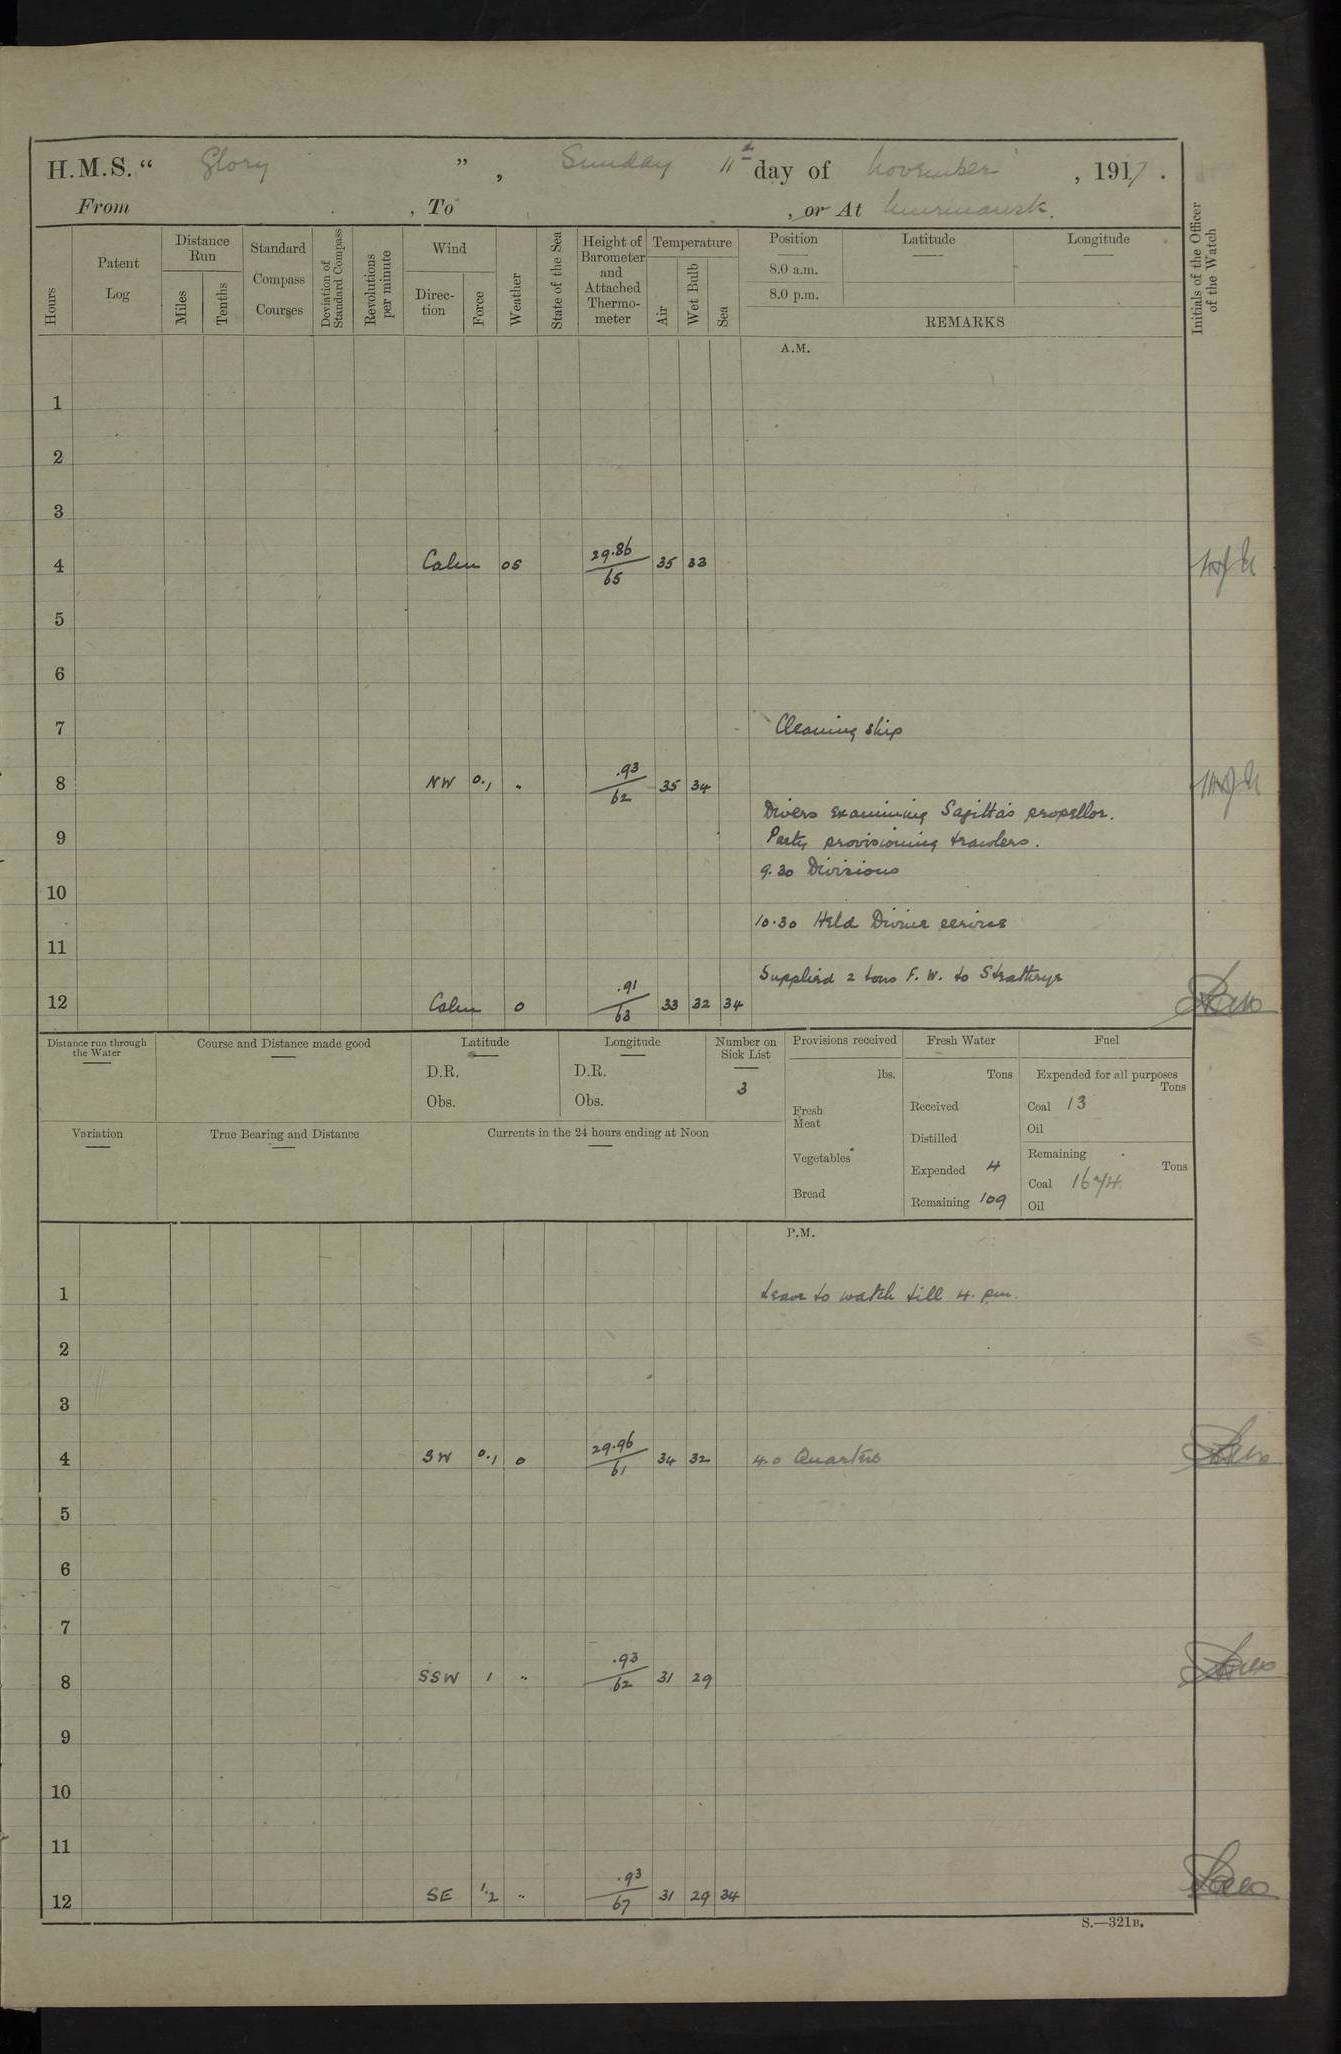 H.M.S. " Glory " , Sunday 11th day of November , 1917 .
From , To , or At Murmansk.
Hours
Patent Log
Distance Run
Miles
Tenths
Standard Compass Courses
Deviation of Standard Compass
Revolutions per minute
Wind
Direc-tion
Force
Weather
State of the Sea
Height of Barometer and Attached Thermo-meter
Temperature
Air
Wet Bulb
Sea
Position
8.0 a.m.
8.0 p.m.
Latitude
Longitude
REMARKS
Initials of the Officer of the Watch
A.M.
1
2
3
4 Calm os 29.86 65 35 33
5
6
7 Cleaning ship
8 NW 0.1 " .93 62 35 34
Divers examining Sagitta's propellor.
9 Party provisioning trawlers.
9.30 Divisions
10
10.30 Held Divine service
11
Supplied 2 tons F. W. to Strathrye
12 Calm o .91 63 33 32 34
Distance run through the Water
Course and Distance made good
Latitude
D.R.
Obs.
Longitude
D.R.
Obs.
Number on Sick List
3
Provisions received
lbs.
Fresh Meat
Vegetables
Bread
Fresh Water
Tons
Received
Distilled
Expended 4
Remaining 109
Fuel
Expended for all purposes
Tons
Coal 13
Oil
Remaining
Tons
Coal 1674
Oil
Variation
True Bearing and Distance
Currents in the 24 hours ending at Noon
P.M.
1 Leave to watch till 4. pm.
2
3
4 SW 0.1 o 29.96 61 34 32 4.0 Quarters
5
6
7
8 SSW 1 " .93 62 31 29
9
10
11
12 SE 1.2 " .93 67 31 29 34
S.—321B.